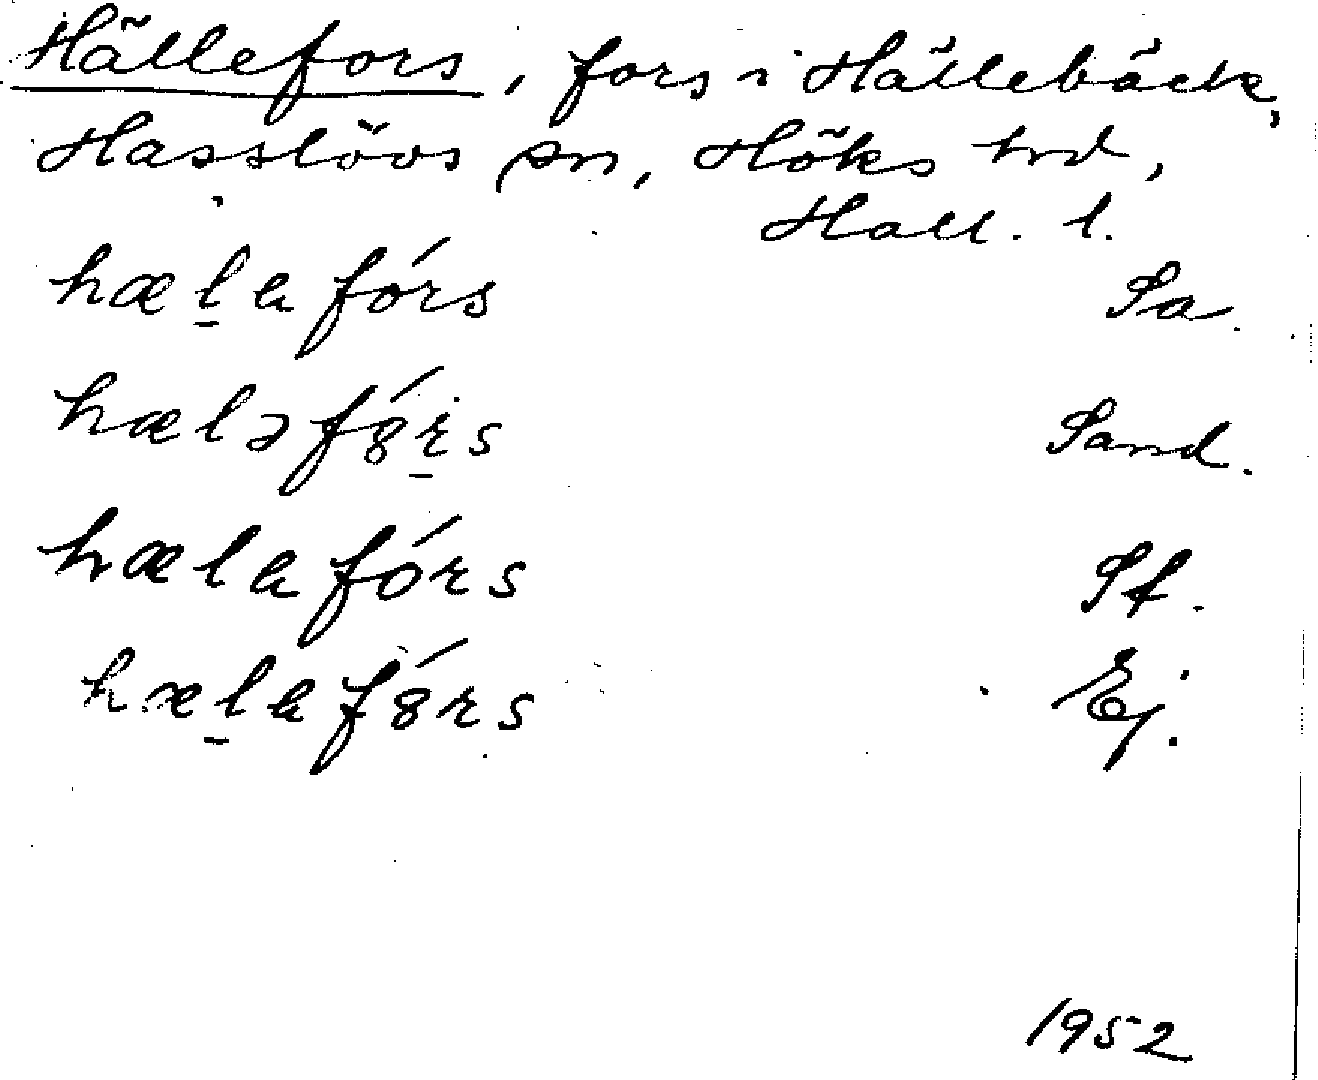 Hällefors, fors i Hällebäck,
Hasslövs sn, Höks hrd,
Hall. l.
hæl̠a fórs Sa.
hæləf8́r̠s Sand.
hæla fórs Sf.
hæl̠a f8́rs Ej.
1952